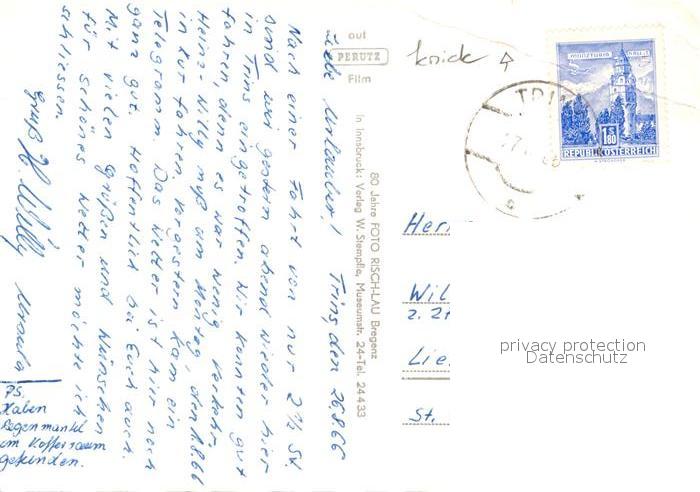 Trins den 26.9.66
Liebe Urlauber!
Nach einer Fahrt von nur 2 1/2 St
sind wir gestern abend wieder hier
in Trins eingetroffen. Wir konnten gut
fahren, denn es war wenig Verkehr.
Heinz-Willy muß am Montag, den 1.8.66
in Kur fahren. Vorgestern kam ein
Telegramm. Das Wetter ist hier noch
ganz gut. Hoffentlich bei Euch auch.
Mit vielen Grüßen und Wünschen
für schönes Wetter möchte ich
schliessen.
Gruß H. Willy
Ursula
PS.
Haben
Regenmantel
im Kofferraum
gefunden.
auf
PERUTZ
Film
80 Jahre FOTO RISCH-LAU Bregenz
In Innsbruck: Verlag W. Stempfle, Museumstr. 24-Tel. 24433
knick
MÜNZTURM
HALL I.
1 S 80
REPUBLIK ÖSTERREICH
Herr
Wil
z. Zt
Lie
St.
privacy protection
Datenschutz